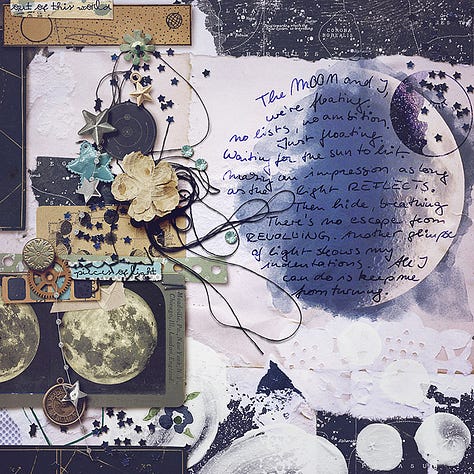 out of this world
CORONA
BOREALIS
The MOON and I,
we're floating.
no lists, no ambition.
Just floating.
Waiting for the sun to hit.
making an impression as long
as the light REFLECTS.
Then hide breathing
There's no escape from
REVOLVING. Another glimpse
of light shows my
indentations. All I
can do is keep me
from turning.
pieces of light